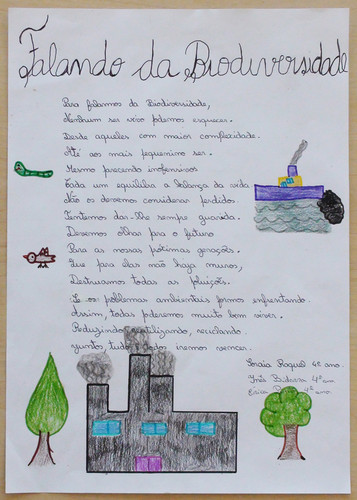 Falando da Biodiversidade
Para falarmos da Biodiversidade,
Nenhum ser vivo podemos esquecer.
Desde aqueles com maior complexidade.
Até aos mais pequenino ser.
Mesmo parecendo inofensivos
Cada um equilibra a balança da vida
Não os devemos considerar perdidos
Tentemos dar-lhe sempre guarida.
Devemos olhar para o futuro
Para as nossas próximas gerações.
Que para elas não haja muros,
Destruamos todas as poluições.
Se os problemas ambientais formos enfrentando.
Assim, todos poderemos muito bem viver.
Reduzindo, reutilizando, reciclando.
Juntos, tudo e todos iremos vencer.
Soraia Roques 4º ano.
Inês 4º ano
4º ano